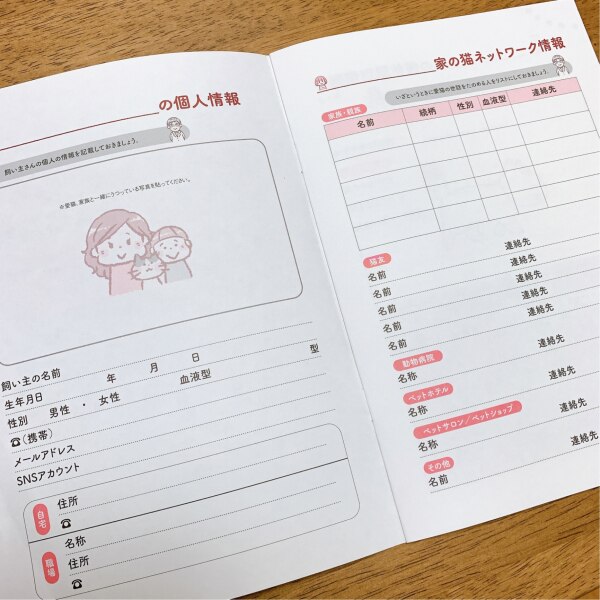 の個人情報
飼い主さんの個人の情報を記載しておきましょう。
※愛猫、家族と一緒にうつっている写真を貼ってください。
飼い主の名前
生年月日 年 月 日
性別 男性 ・ 女性 血液型 型
☎(携帯)
メールアドレス
SNSアカウント
自宅
住所
☎
職場
名称
住所
☎
家の猫ネットワーク情報
いざというときに愛猫の世話をたのめる人をリストにしておきましょう。
家族・親族
名前 続柄 性別 血液型 連絡先
猫友
名前 連絡先
名前 連絡先
名前 連絡先
名前 連絡先
名前 連絡先
動物病院
名称 連絡先
ペットホテル
名称 連絡先
ペットサロン/ペットショップ
名称 連絡先
その他
名前 連絡先